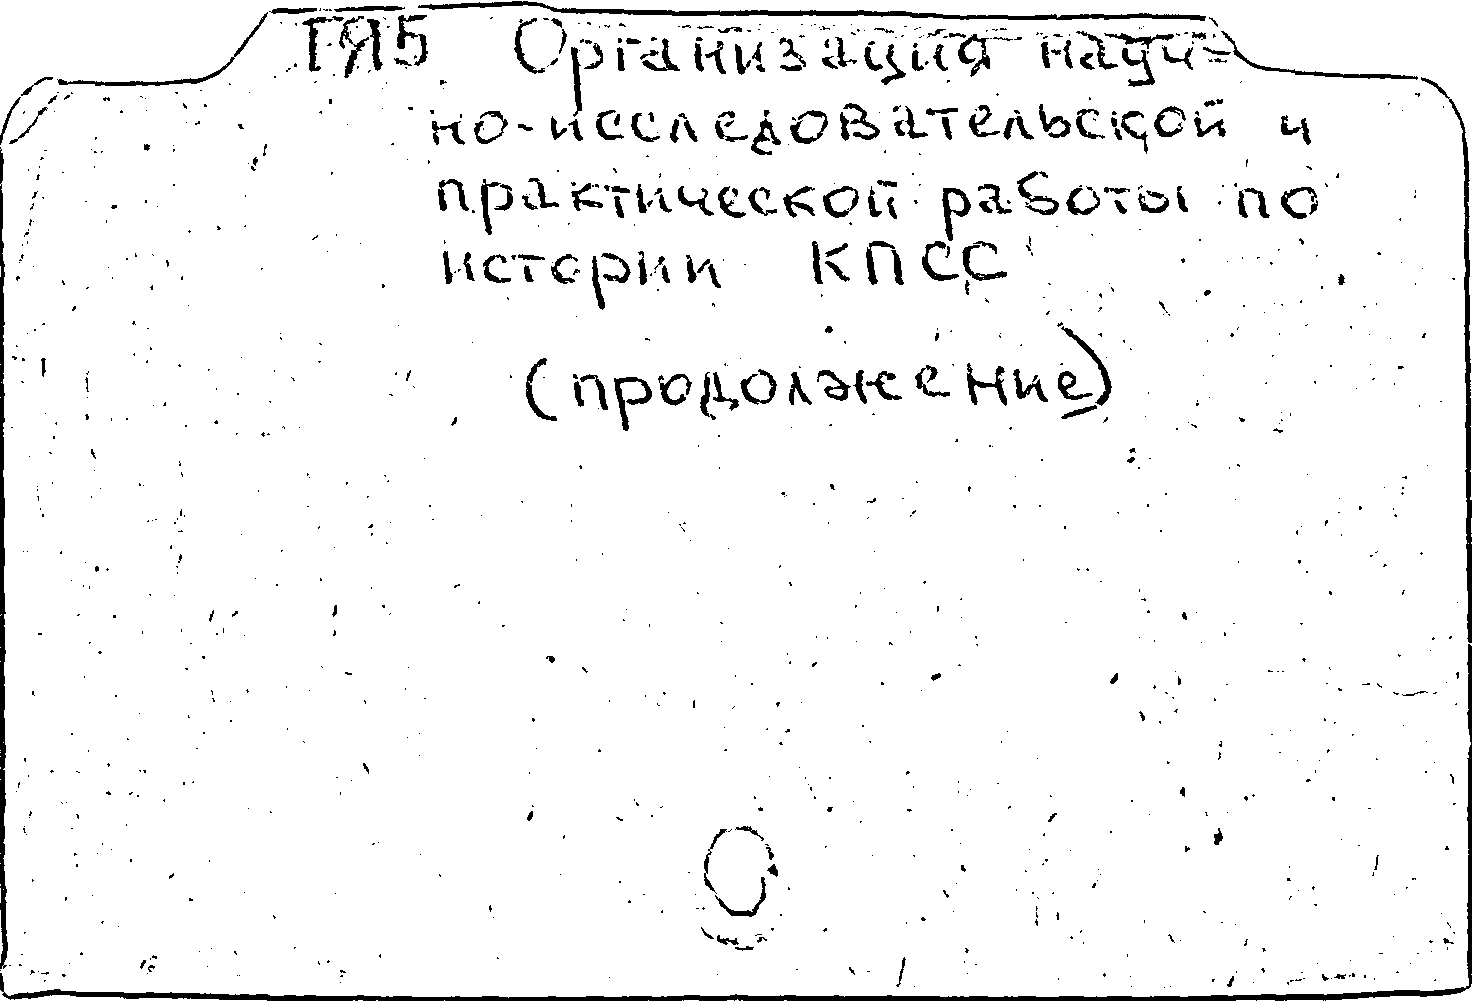 1Я5 Организация науч-
но-исследовательской и
практической работы по
истории КПСС
(продолжение)